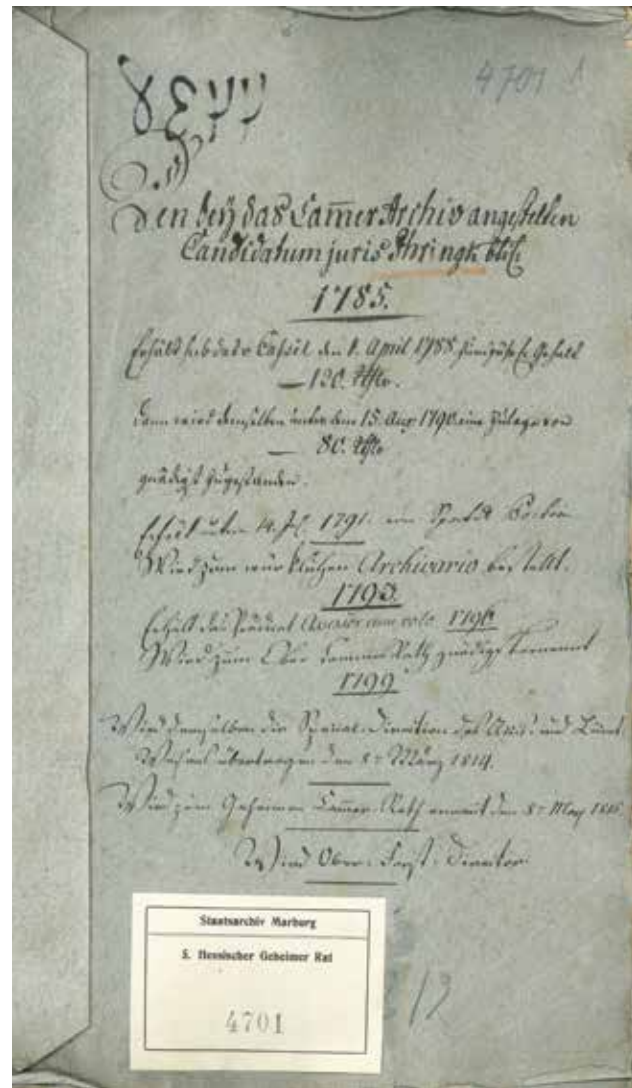 4701
Den bey das Cammer Archiv angestellten
Candidatum juris
1785.
Erhält sub dato Cassel den 1. April 1788 Gehalt
— 130. Rthlr.
dann wird demselben unter dem 15. Aug 1790 eine Zulage von
— 80. Rthlr
gnädigst zugestanden.
Erhält unterm 14. 1791.
Wird zum würklichen Archivario bestellt.
1793.
Erhält das Prädicat Assessor cum voto 1796
Wird zum Ober Cammer Rath gnädigst ernannt
1799
Wird demselben die Special-Direction des und
Wesens übertragen den 8t März 1814.
Wird zum Geheimen Cammer-Rath ernannt den 8t May
Wird Ober-Forst-Director
Staatsarchiv Marburg
5. Hessischer Geheimer Rat
4701